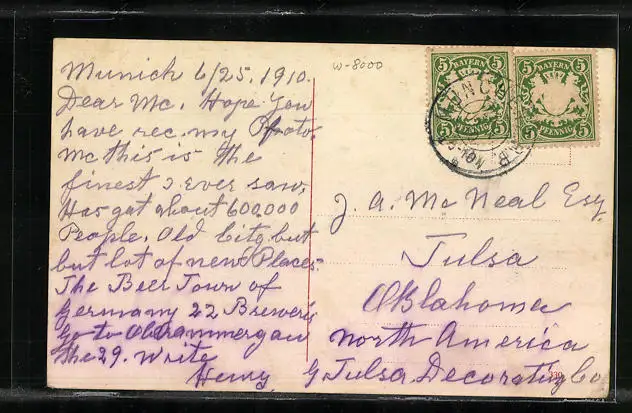 Munich 6/25, 1910.
Dear Mc. Hope You
have rec. my Photo
Mc this is the
finest I ever saw.
Has got about 600,000
People. Old City but
but lot of new Places.
The Beer Town of
Germany 22 Breweris
Go to Obrammergau
the 29. Write
Henry
w-8000
BAYERN
5 5
5 5
PFENNIG
BAYERN
5 5
5 5
PFENNIG
J. A. McNeal Esq.
Tulsa
Oklahoma
North America
Tulsa Decorating Co